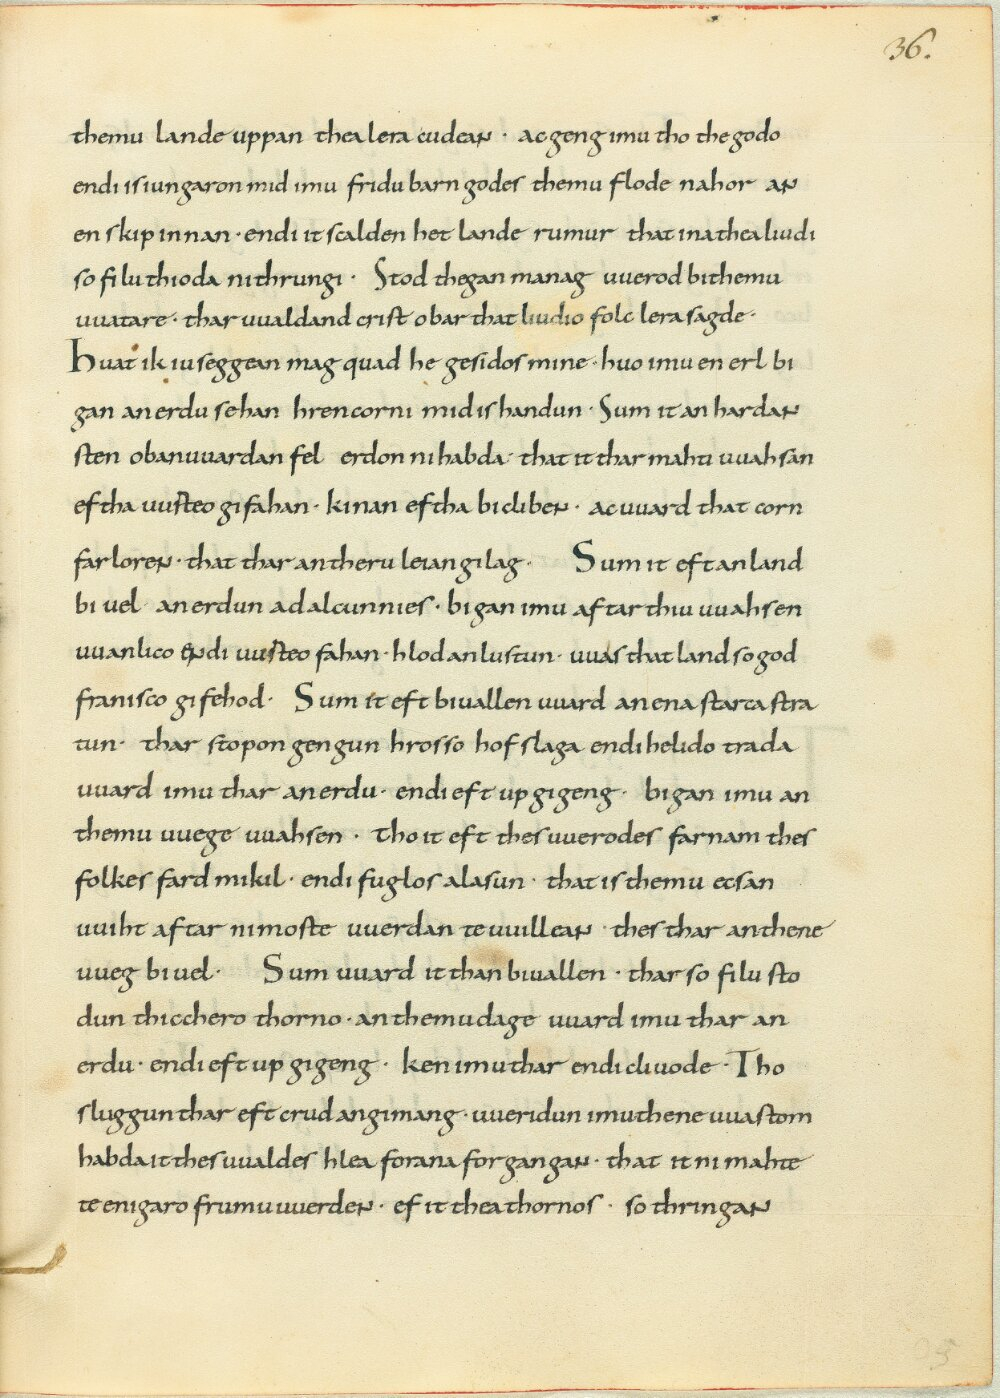 36.
themu lande uppan thea lera cudean · ac geng imu tho the godo
endi is iungaron mid imu fridu barn godes themu flode nahor an
en skip innan · endi it scalden het lande rumur that ina thea liudi
so filu thioda ni thrungi · Stod thegan manag uuerod bi themu
uuatare · thar uualdand crist obar that liudio folc lera sagde ·
Huat ik iu seggean mag quad he gesidos mine · huo imu en erl bi
gan an erdu sehan hrencorni mid is handun · Sum it an hardan
sten obanuuardan fel erdon ni habda · that it thar mahti uuahsan
eftha uurteo gifahan · kinan eftha bicliben · ac uuard that corn
farloren · that thar an theru leian gilag · Sum it eft an land
bi uel an erdun adalcunnies · bigan imu aftar thiu uuahsen
uuanlico endi uurteo fahan · hlod an lustun · uuas that land so god
franisco gifehod · Sum it eft biuallen uuard an ena starca stra
tun · thar stopon gengun hrosso hofslaga endi helido trada
uuard imu thar an erdu · endi eft up gigeng · bigan imu an
themu uuege uuahsen · Tho it eft thes uuerodes farnam thes
folkes fard mikil · endi fuglos alasun · that is themu ecsan
uuiht aftar ni moste uuerdan te uuillean thes thar an thene
uueg bi uel · Sum uuard it than biuallen · thar so filu sto
dun thicchero thorno · an themu dage uuard imu thar an
erdu · endi eft up gigeng · ken imu thar endi cliuode · Tho
sluggun thar eft crud an gimang · uueridun imu thene uuastom
habda it thes uualdes hlea forana forgangan · that it ni mahte
te enigaro frumu uuerden · ef it thea thornos · so thringan